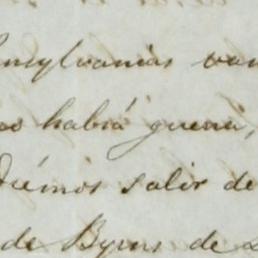 nsylvanias van
habrá guerra,
diémos salir de
de Byrns de